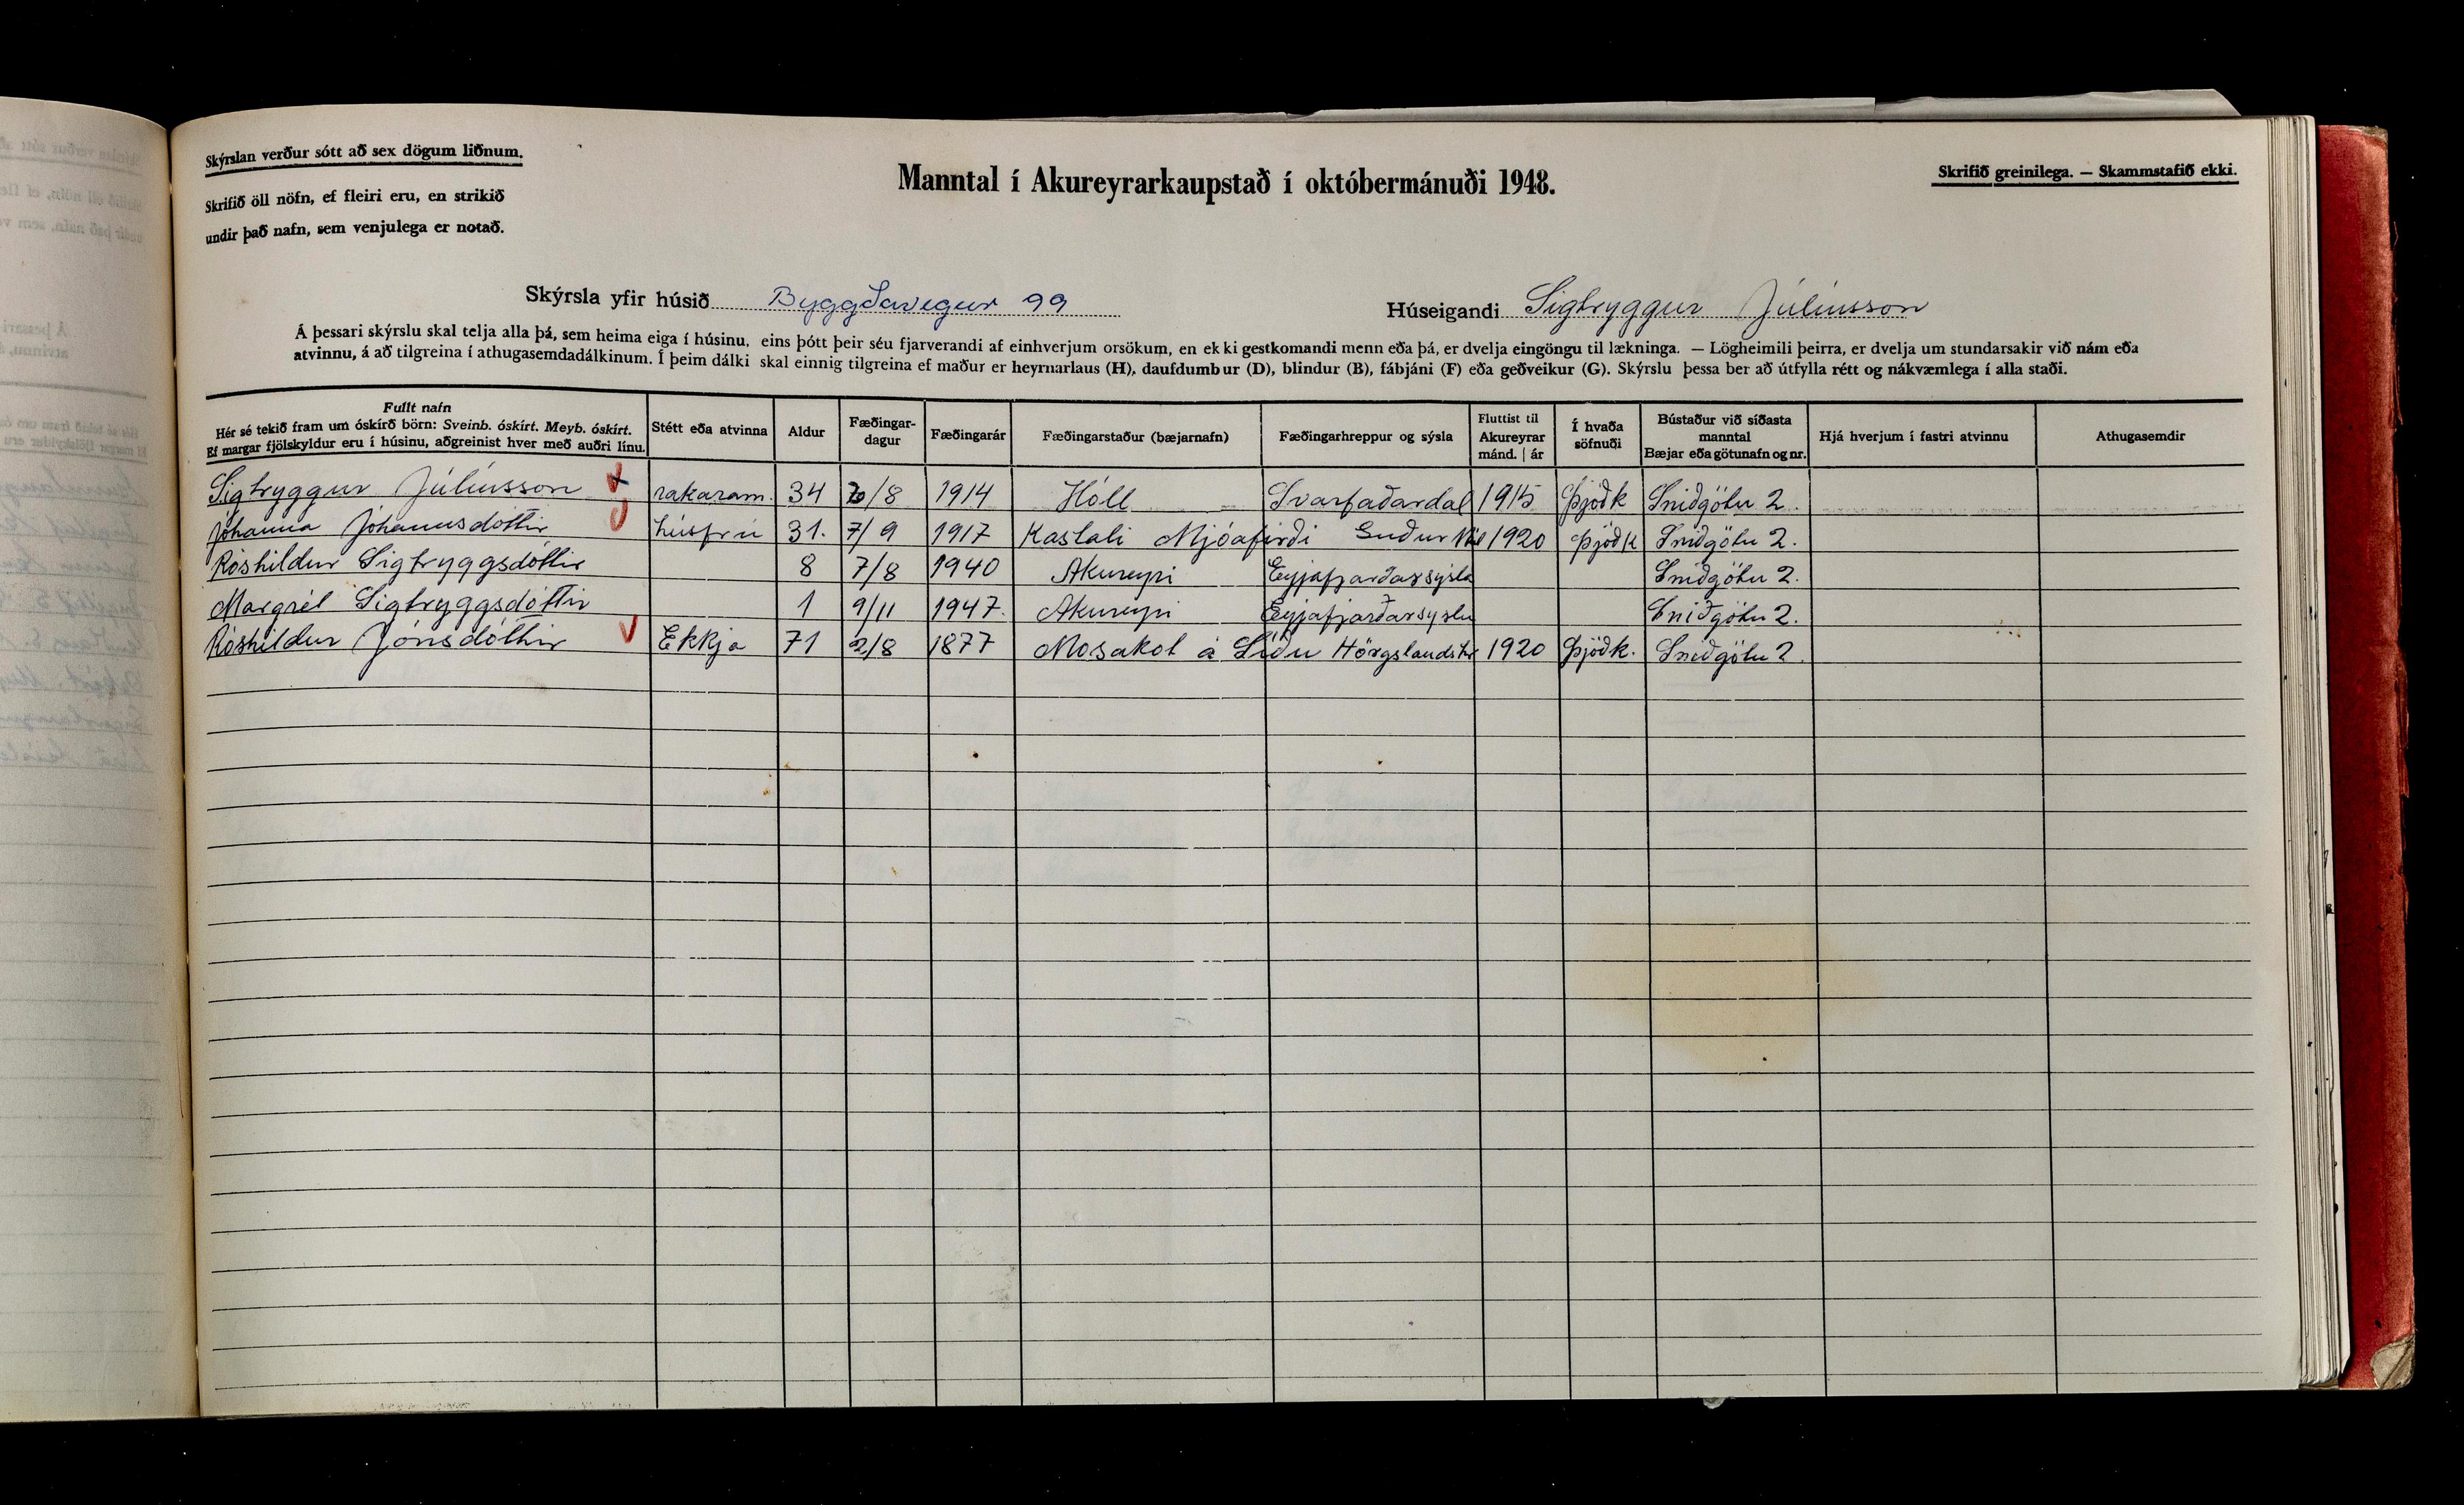 Skýrslan verður sótt að sex dögum liðnum.
Skrifið öll nöfn, ef fleiri eru, en strikið
undir það nafn, sem venjulega er notað.
Manntal í Akureyrarkaupstað í októbermánuði 1948.
Skrifið greinilega. — Skammstafið ekki.
Skýrsla yfir húsið Byggðavegur 99
Húseigandi Sigtryggur Júlíusson
Á þessari skýrslu skal telja alla þá, sem heima eiga í húsinu, eins þótt þeir séu fjarverandi af einhverjum orsökum, en ekki gestkomandi menn eða þá, er dvelja eingöngu til lækninga. — Lögheimili þeirra, er dvelja um stundarsakir við nám eða
atvinnu, á að tilgreina í athugasemdadálkinum. Í þeim dálki skal einnig tilgreina ef maður er heyrnarlaus (H), daufdumbur (D), blindur (B), fábjáni (F) eða geðveikur (G). Skýrslu þessa ber að útfylla rétt og nákvæmlega í alla staði.
Fullt nafn
Hér sé tekið fram um óskírð börn: Sveinb. óskírt. Meyb. óskírt.
Ef margar fjölskyldur eru í húsinu, aðgreinist hver með auðri línu.
Stétt eða atvinna
Aldur
Fæðingar-
dagur
Fæðingarár
Fæðingarstaður (bæjarnafn)
Fæðingarhreppur og sýsla
Fluttist til
Akureyrar
mánd. | ár
Í hvaða
söfnuði
Bústaður við síðasta
manntal
Bæjar eða götunafn og nr.
Hjá hverjum í fastri atvinnu
Athugasemdir
Sigtryggur Júlíusson rakaram. 34 /8 1914 Hóll Svarfaðardal 1915 Þjóðk Sniðgötu 2.
Jóhanna Jóhannsdóttir húsfrú 31. 7/9 1917 Kastali Mjóafirði Suður 1920 Þjóðk Sniðgötu 2.
Róshildur Sigtryggsdóttir 8 7/8 1940 Akureyri Eyjafjarðarsýsla Sniðgötu 2.
Margrét Sigtryggsdóttir 1 9/11 1947. Akureyri Eyjafjarðarsýslu Sniðgötu 2.
Róshildur Jónsdóttir Ekkja 71 2/8 1877 Mosakot á Síðu Hörgslandshr 1920 Þjóðk. Sniðgötu 2.